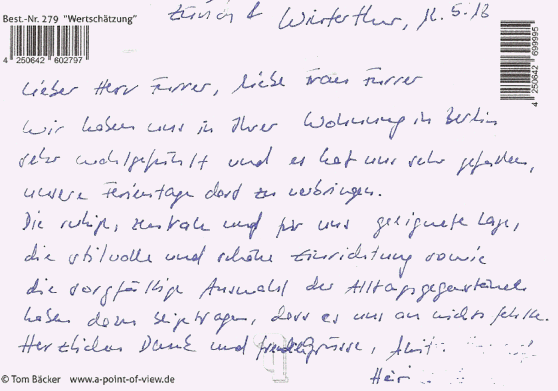 Best.-Nr. 279 "Wertschätzung"
Zürich & Winterthur, 12.5.13
4 250642 602797
4 250642 699995
Lieber Herr Furrer, liebe Frau Furrer
Wir haben uns in Ihrer Wohnung in Berlin
sehr wohlgefühlt und es hat uns sehr gefallen,
unsere Ferientage dort zu verbringen.
Die ruhige, zentrale und für uns geeignete Lage,
die stilvolle und schöne Einrichtung sowie
die sorgfältige Auswahl der Alltagsgegenstände
haben dazu beigetragen, dass es uns an nichts fehlte.
Herzlichen Dank und
© Tom Bäcker www.a-point-of-view.de